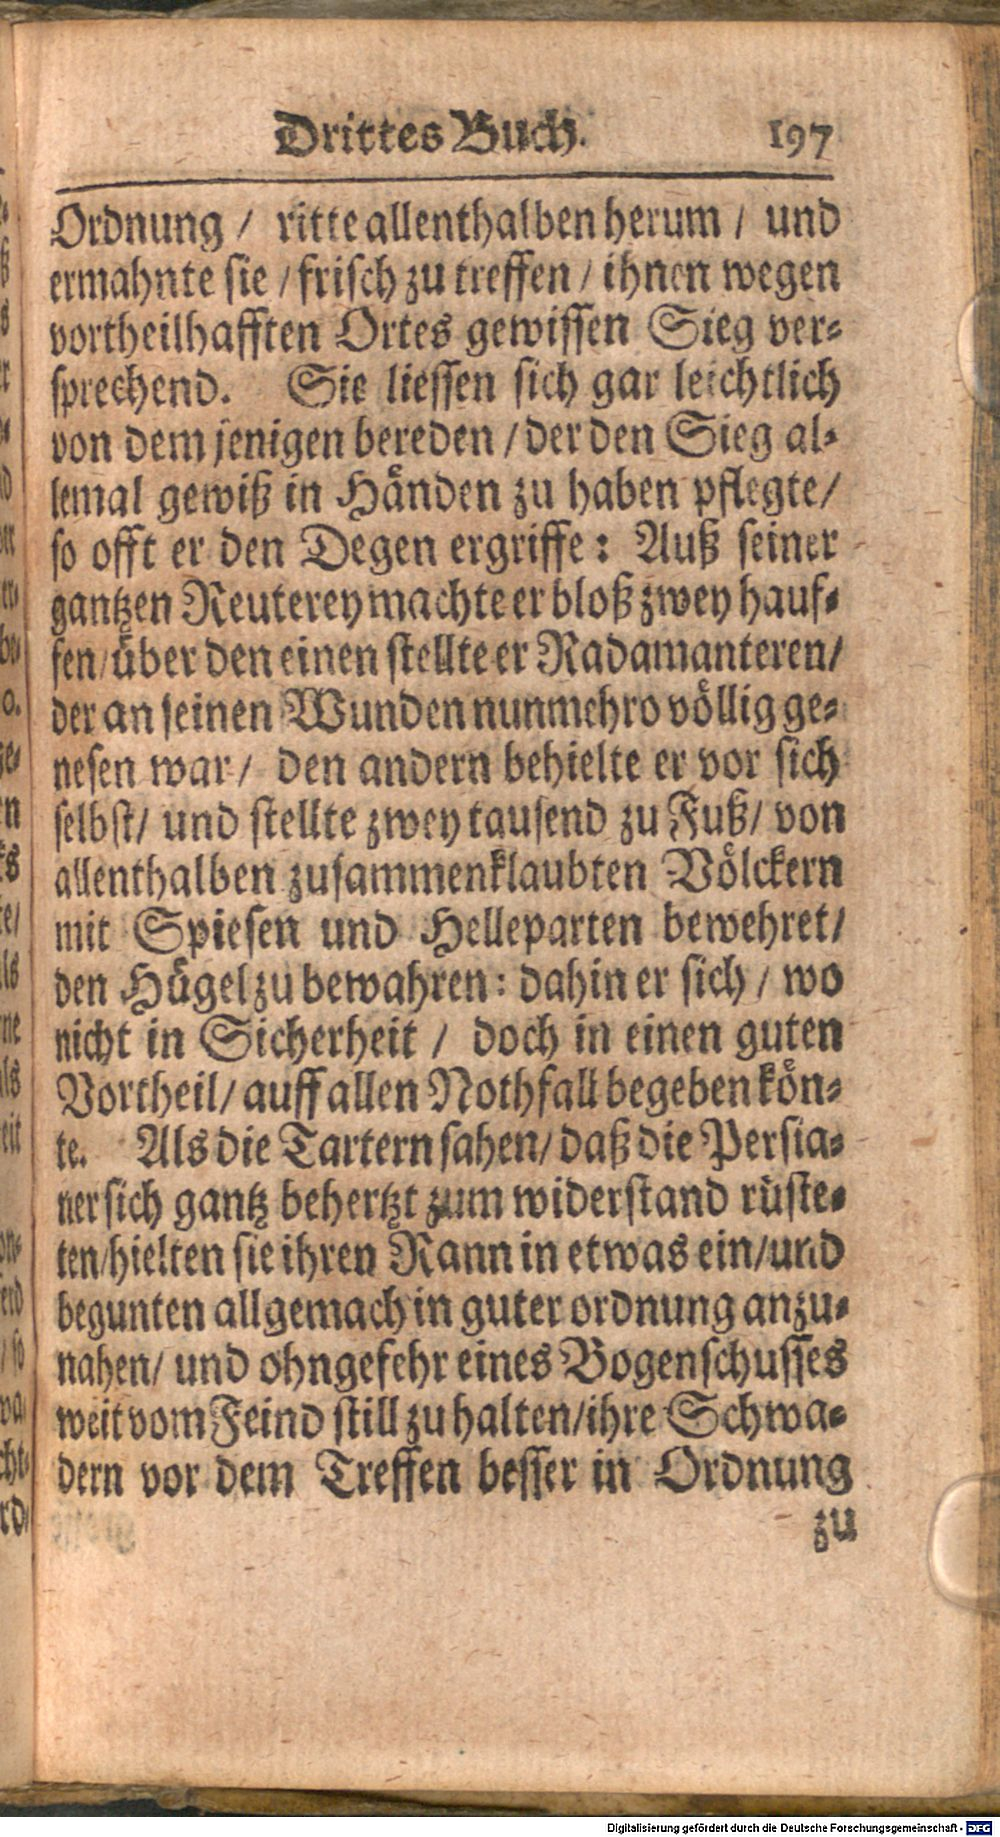 Drittes Buch. 197
Ordnung / ritte allenthalben herum / und
ermahnte sie / frisch zu treffen / ihnen wegen
vortheilhafften Ortes gewissen Sieg ver-
sprechend. Sie liessen sich gar leichtlich
von dem jenigen bereden / der den Sieg al-
lemal gewiß in Händen zu haben pflegte /
so offt er den Degen ergriffe: Auß seiner
gantzen Reuterey machte er bloß zwey hauf-
fen / über den einen stellte er Radamanteren /
der an seinen Wunden nunmehro völlig ge-
nesen war / den andern behielte er vor sich
selbst / und stellte zwey tausend zu Fuß / von
allenthalben zusammenklaubten Völckern
mit Spiesen und Helleparten bewehret /
den Hügel zu bewahren: dahin er sich / wo
nicht in Sicherheit / doch in einen guten
Vortheil / auff allen Nothfall begeben kön-
te. Als die Tartern sahen / daß die Persia-
ner sich gantz behertzt zum widerstand rüste-
ten / hielten sie ihren Rann in etwas ein / und
begunten allgemach in guter ordnung anzu-
nahen / und ohngefehr eines Bogenschusses
weit vom Feind still zu halten / ihre Schwa-
dern vor dem Treffen besser in Ordnung
zu
Digitalisierung gefördert durch die Deutsche Forschungsgemeinschaft - DFG